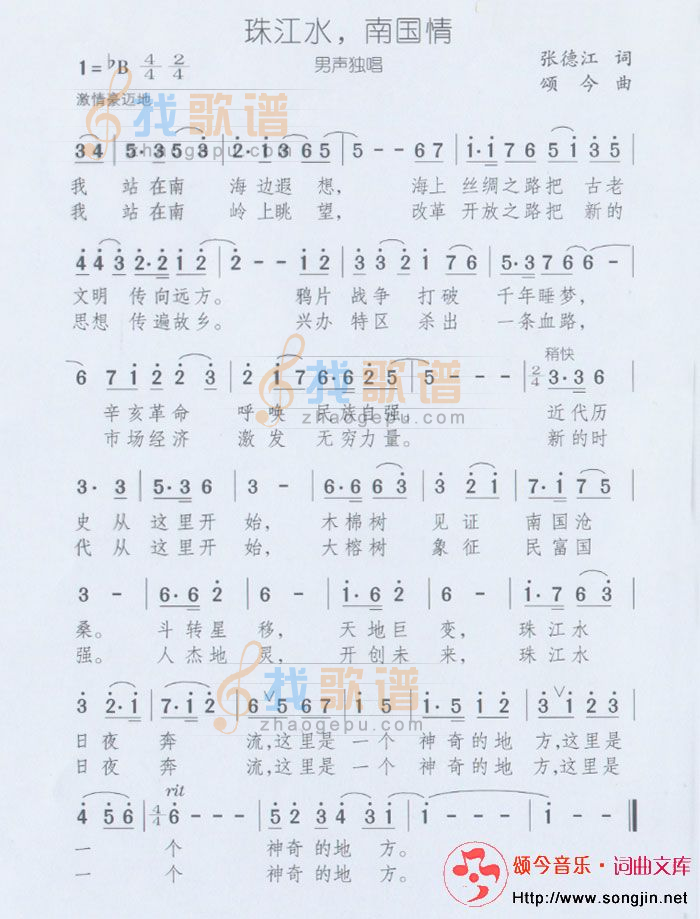 珠江水，南国情
1=♭B 4/4 2/4 男声独唱 张德江 词
颂今 曲
激情豪迈地
找歌谱
zhaogepu.com
3 4 | 5·3 5 3 | 2·1 3 6 5 | 5 - - 6 7 | 1·1 7 6 5 1 3 5 |
我 站在南 海边遐 想， 海上 丝绸之路把 古老
我 站在南 岭上眺 望， 改革 开放之路把 新的
4 4 3 2·2 1 2 | 2 - - 1 2 | 3 3 2 1 7 6 | 5·3 7 6 6 - |
文明 传向远方。 鸦片 战争 打破 千年睡梦，
思想 传遍故乡。 兴办 特区 杀出 一条血路，
稍快
6 7 1 2 2 3 | 2 1 7 6·6 2 5 | 5 - - - | 2/4 3·3 6 |
辛亥革命 呼唤 民族自强。 近代历
市场经济 激发 无穷力量。 新的时
找歌谱
zhaogepu.com
3· 3 | 5·3 6 | 3 - | 6·6 6 3 | 3 2 1 | 7·1 7 5 |
史 从 这里开 始， 木棉树 见证 南国沧
代 从 这里开 始， 大榕树 象征 民富国
3 - | 6·6 2 | 6 - | 1·6 2 | 6 - | 1·7 6 3 |
桑。 斗转星 移， 天地巨 变， 珠江水
强。 人杰地 灵， 开创未 来， 珠江水
找歌谱
zhaogepu.com
3 2·1 | 7·1 2 | 6 5 6 7 | 1 5 | 1·5 1 2 | 3 1 2 3 |
日夜 奔 流,这里是 一个 神奇的地 方,这里是
日夜 奔 流,这里是 一个 神奇的地 方,这里是
rit
4 5 6 | 4/4 6 - - - | 5 2 3 4 3 1 | 1 - - - | 1 - - ‖
一 个 神奇的地 方。
一 个 神奇的地 方。
颂今音乐·词曲文库
Http://www.songjin.net